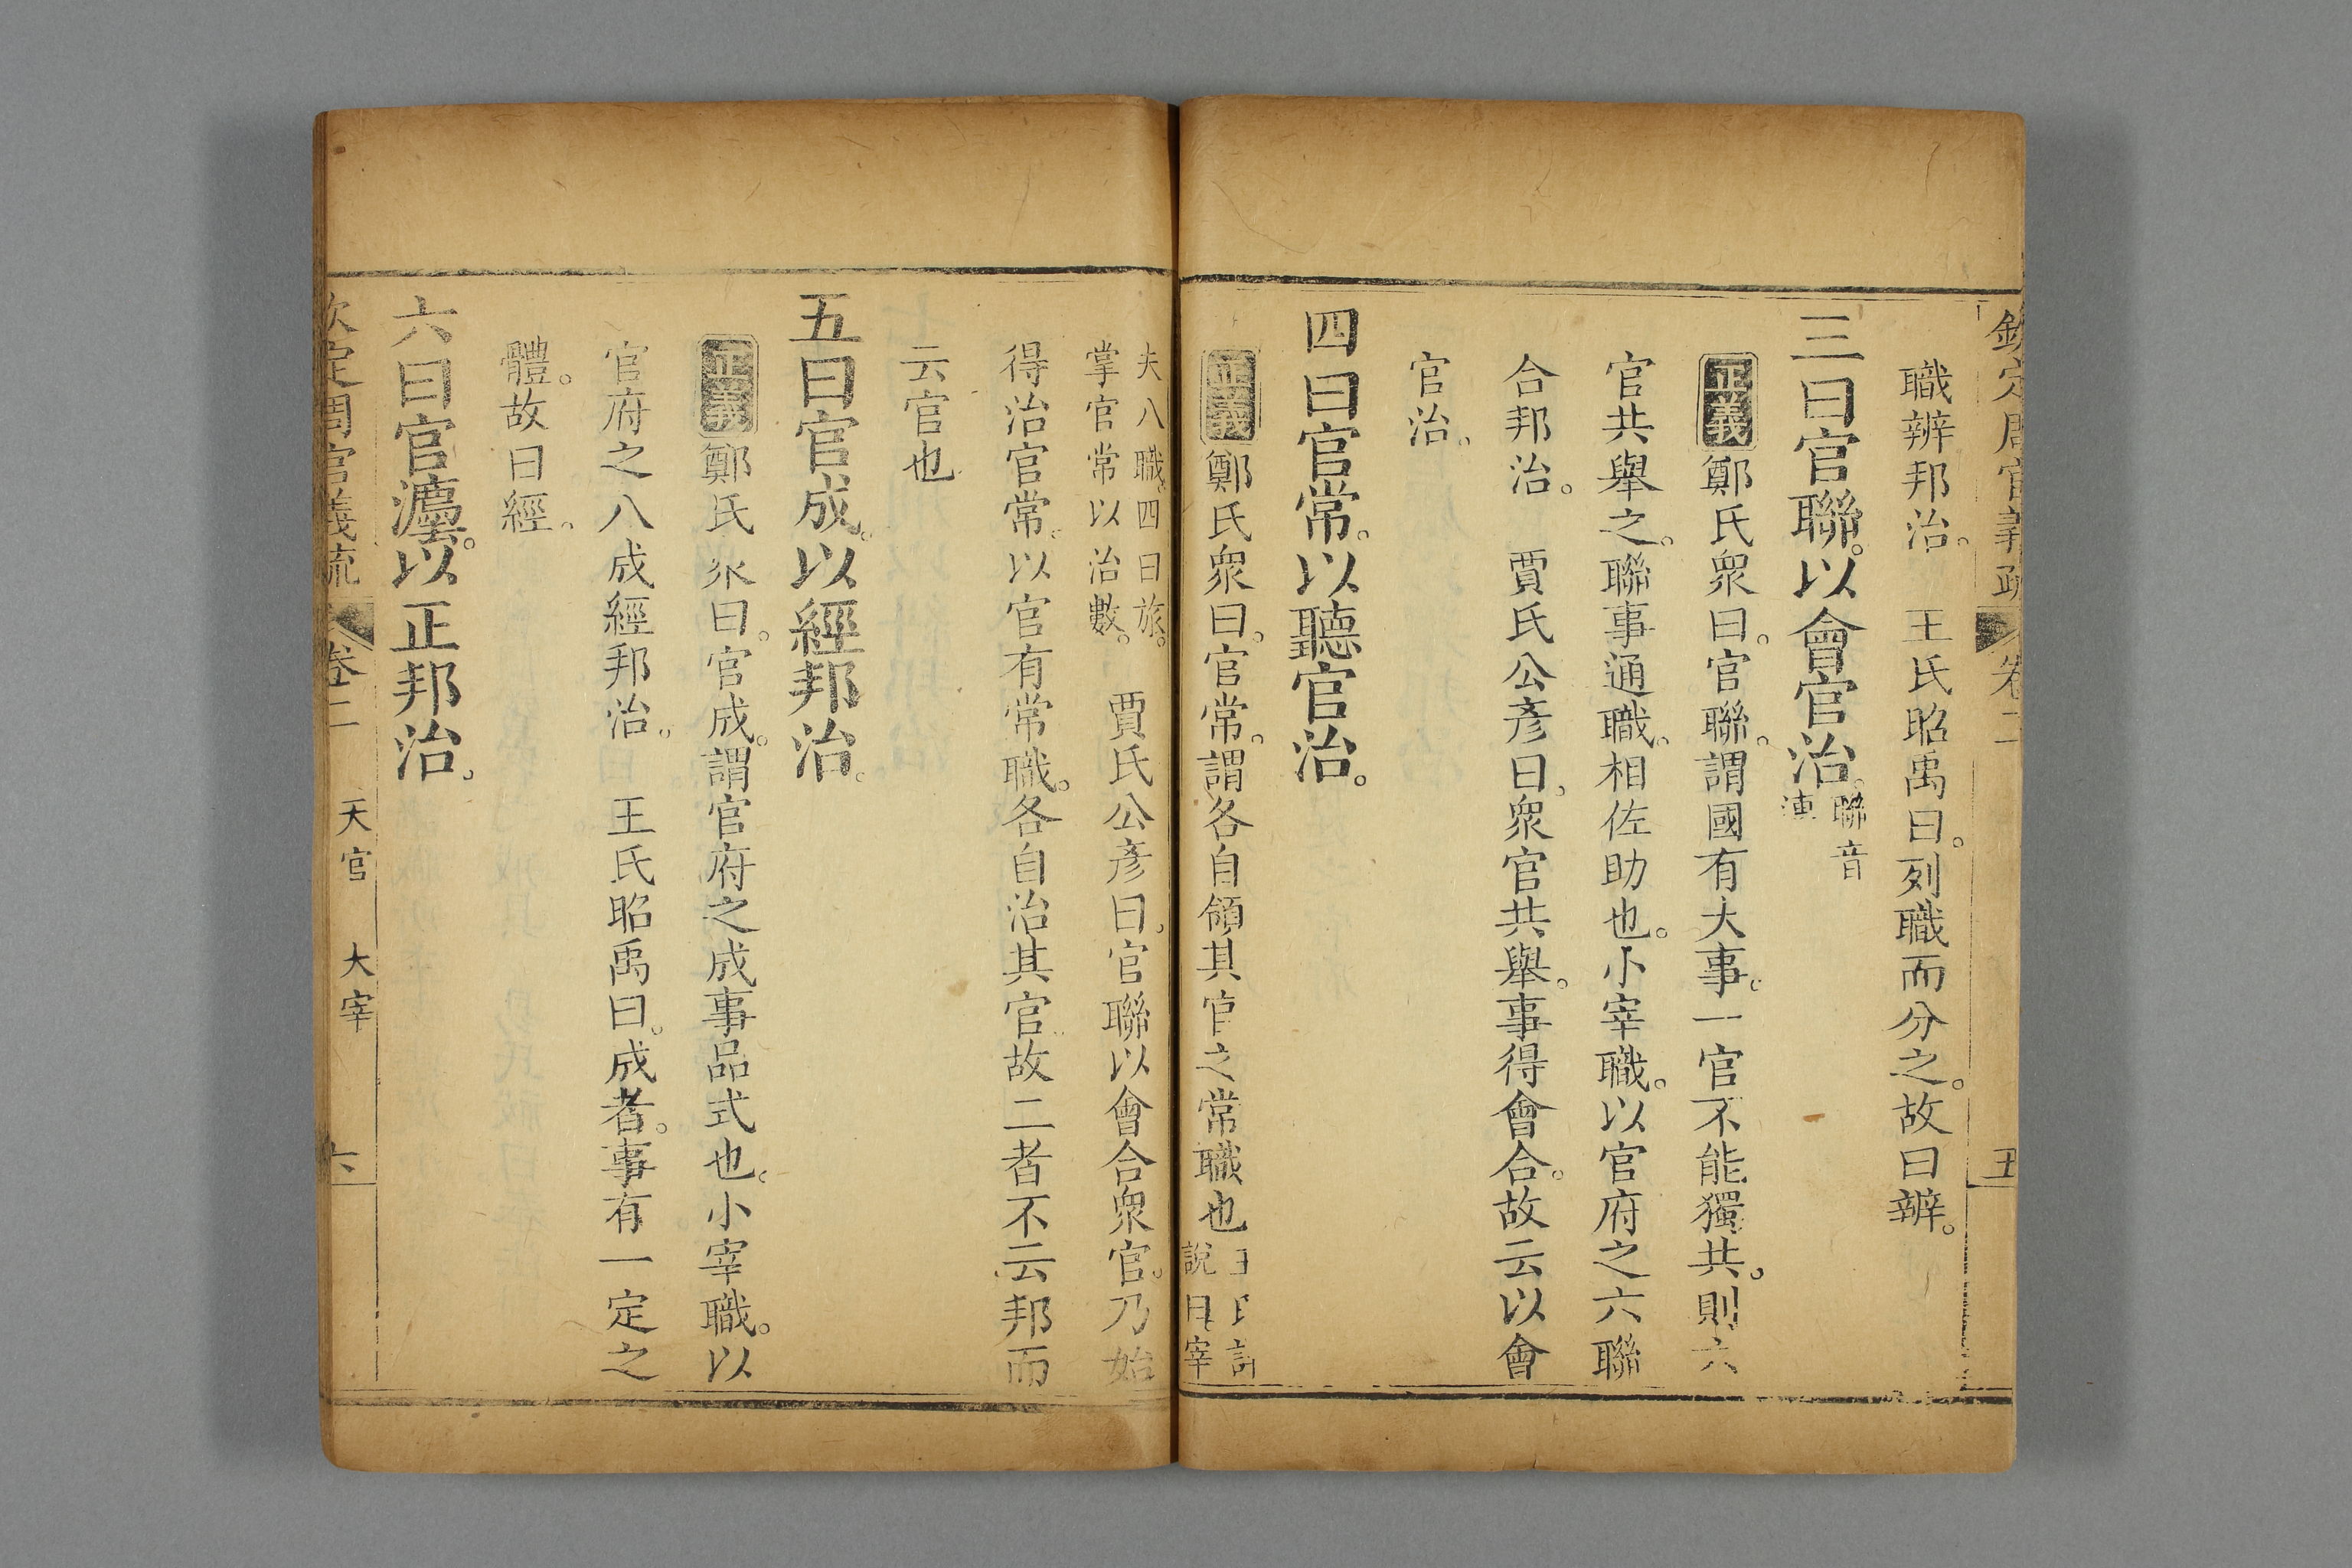 職辦邦治。　王氏昭禹曰。列職而分之。故曰辦。
三曰官聯。以會官治。聯音
連
正義鄭氏衆曰。官聯。謂國有大事。一官不能獨共。則六
官共舉之。聯事通職。相佐助也。小宰職。以官府之六聯
合邦治。　賈氏公彥曰。衆官共舉。事得會合。故云以會
官治。
四曰官常。以聽官治。
正義鄭氏衆曰。官常。謂各自領其官之常職也
說曰宰
夫八職。四曰旅。
掌官常以治數。　賈氏公彥曰。官聯以會合衆官。乃始
得治官常。以官有常職。各自治其官故二者不云邦而
云官也
五曰官成。以經邦治。
正義鄭氏衆曰。官成。謂官府之成事品式也。小宰職。以
官府之八成經邦治。　王氏昭禹曰。成者。事有一定之
體。故曰經。
六曰官灋。以正邦治。
欽定周官義疏　卷二　天官　大宰　六